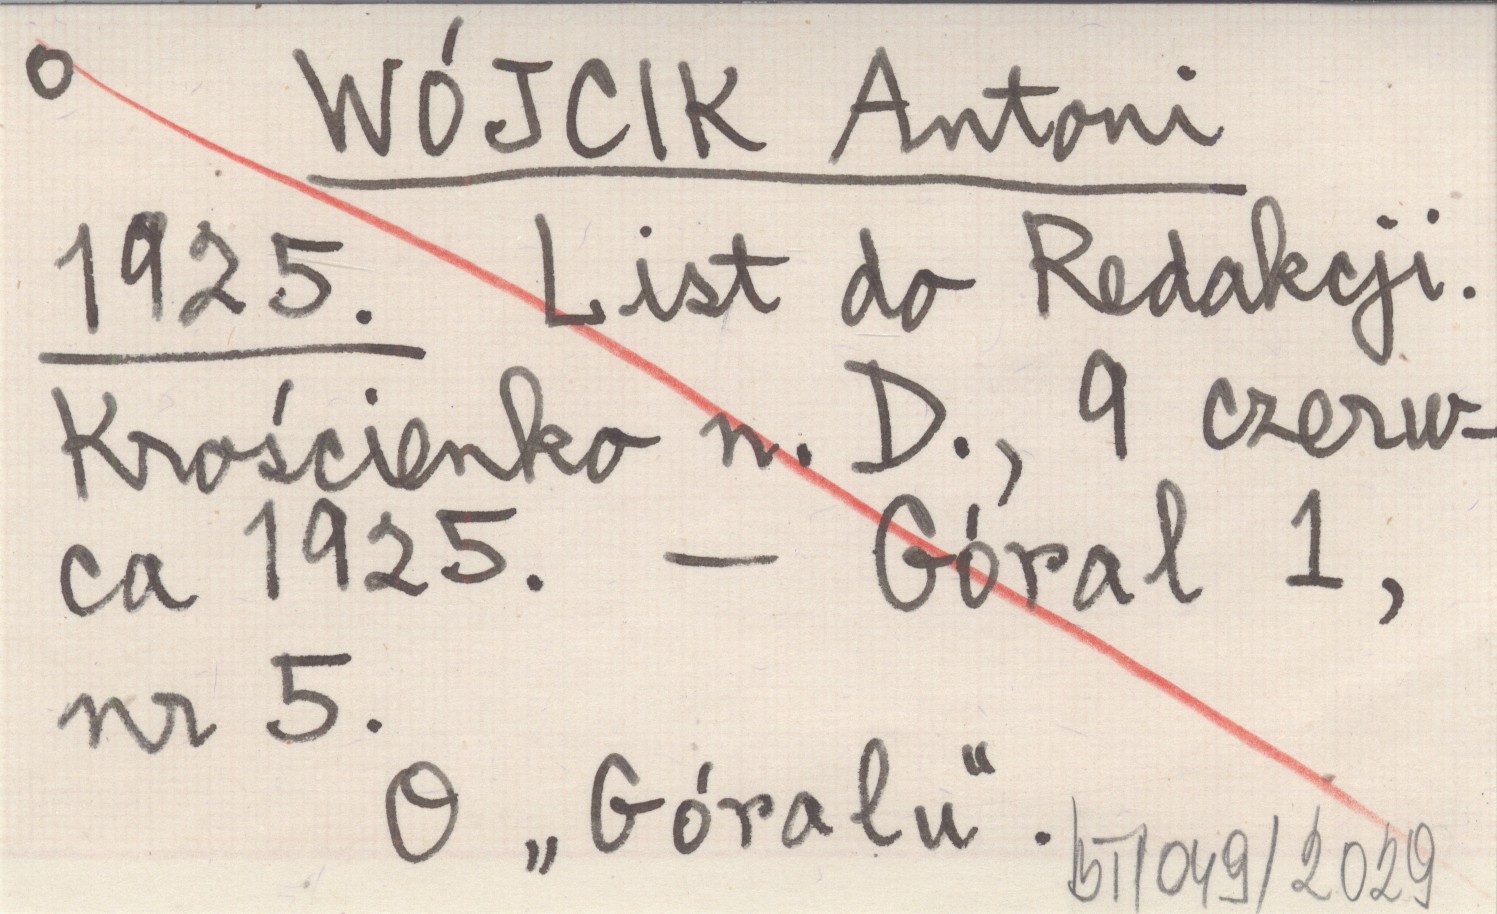 o WÓJCIK Antoni
1925. List do Redakcji.
Krościenko n. D., 9 czerw-
ca 1925. — Góral 1,
nr 5.
O „Góralu".
BT/049/2029